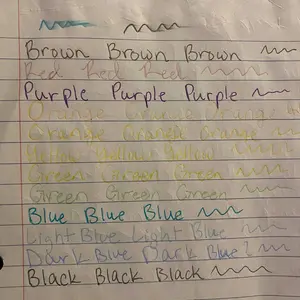 Brown Brown Brown
Red Red Red
Purple Purple Purple
Orange Orange Orange
Orange Orange Orange
Yellow Yellow Yellow
Green Green Green
Green Green Green
Blue Blue Blue
Light Blue Light Blue
Dark Blue Dark Blue
Black Black Black